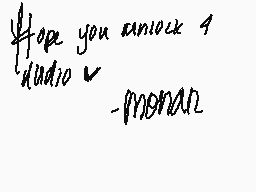 Hope you unlock 4
Audio
-monan